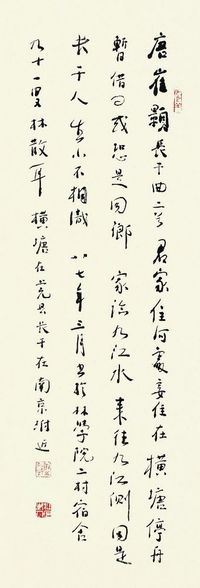 唐崔顥長干曲二首君家住何處妾住在橫塘停舟
暫借问或恐是同鄉 家临九江水 来往九江侧 同是
長干人 生小不相識 八七年三月書於林學院二村宿舍
九十一叟林散耳 橫塘在 長干在南京附近